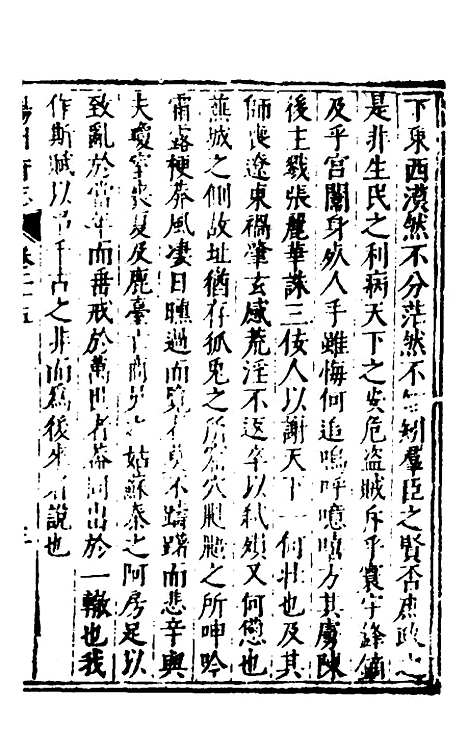 下東西漠然不分茫然不知羣臣之賢否庶政之
是非生民之利病天下之安危盜賊斥乎寰宇鋒鏑
及乎宫闈身殁人手雖悔何追嗚呼噫嘻方其虜陳
後主戮張麗華誅三佞人以謝天下一何壯也及其
師喪遼東禍肇玄感荒淫不返卒以弒殞又何憊也
蕪城之側故址猶存狐兎之所窟穴鼪鼬之所呻吟
霜露梗莽風凄日曛過而覽者莫不躊躇而悲辛與
夫瓊室喪夏及鹿臺亡商吳之姑蘇秦之阿房足以
致亂於當年而垂戒於萬世者蓋同出於一轍也我
作斯賦以弔千古之非而爲後來者說也
揚州府志 卷之二十五